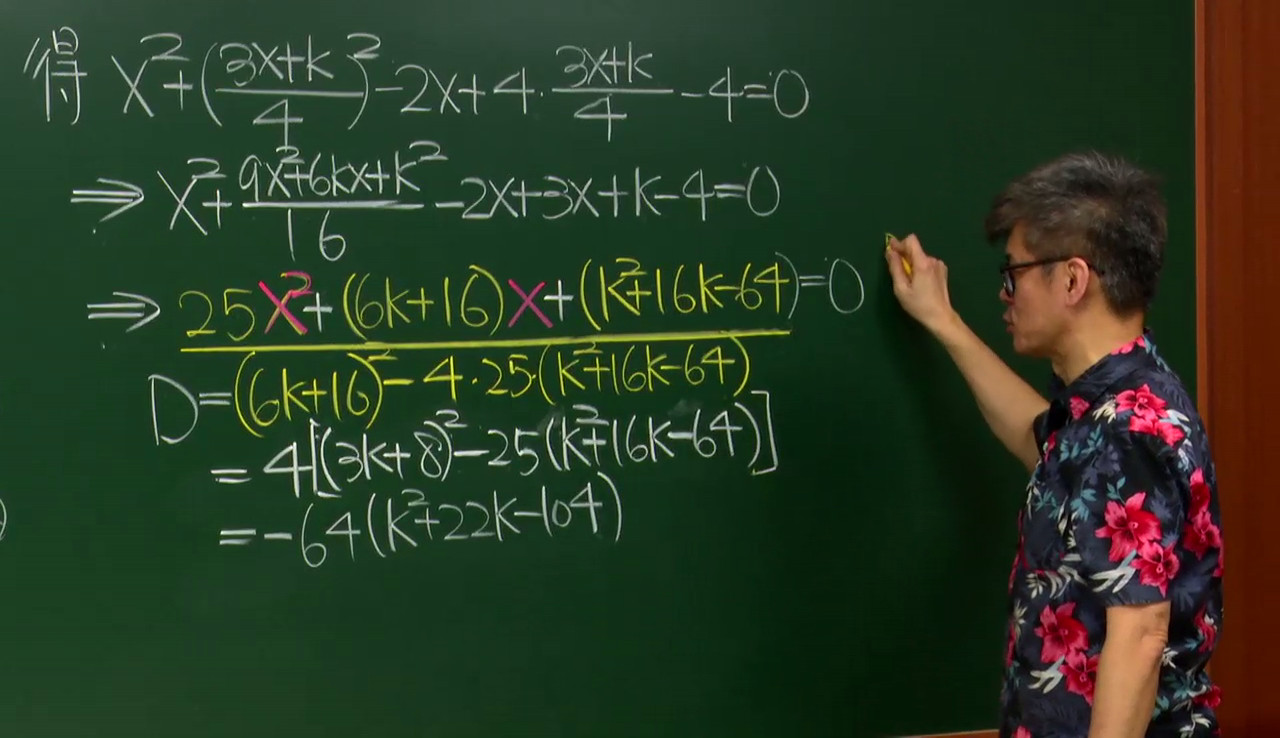 得 x²+(3x+k/4)²-2x+4·3x+k/4-4=0
⇒ x²+9x²+6kx+k²/16-2x+3x+k-4=0
⇒ 25x²+(6k+16)x+(k²+16k-64)=0
D=(6k+16)²-4·25·(k²+16k-64)
=4[(3k+8)²-25(k²+16k-64)]
=-64(k²+22k-104)